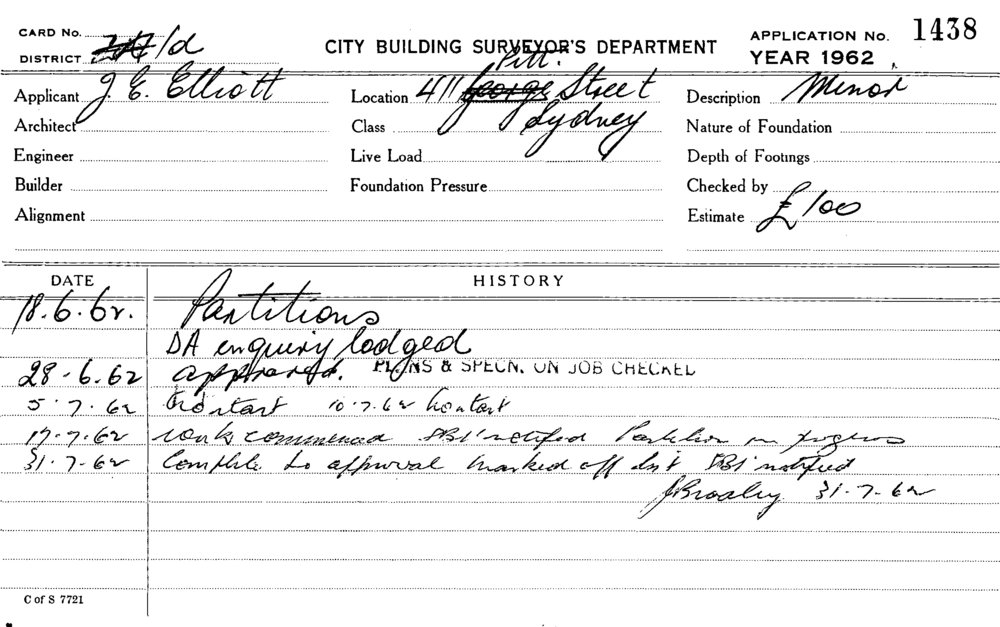 CARD No.
DISTRICT 1/d
CITY BUILDING SURVEYOR'S DEPARTMENT
APPLICATION No. 1438
YEAR 1962
Applicant J. E. Elliott
Location 411 George Pitt. Street
Sydney
Description Minor
Architect
Class
Nature of Foundation
Engineer
Live Load
Depth of Footings
Builder
Foundation Pressure
Checked by
Alignment
Estimate £100
DATE HISTORY
18.6.62. Partitions
DA enquiry lodged
28.6.62 approved. PLANS & SPECN. ON JOB CHECKED
5.7.62 No start 10.7.62 No start
17.7.62 work commenced DBI notified Partition in progress
31.7.62 Complete to approval marked off list DBI notified
31.7.62
C of S 7721